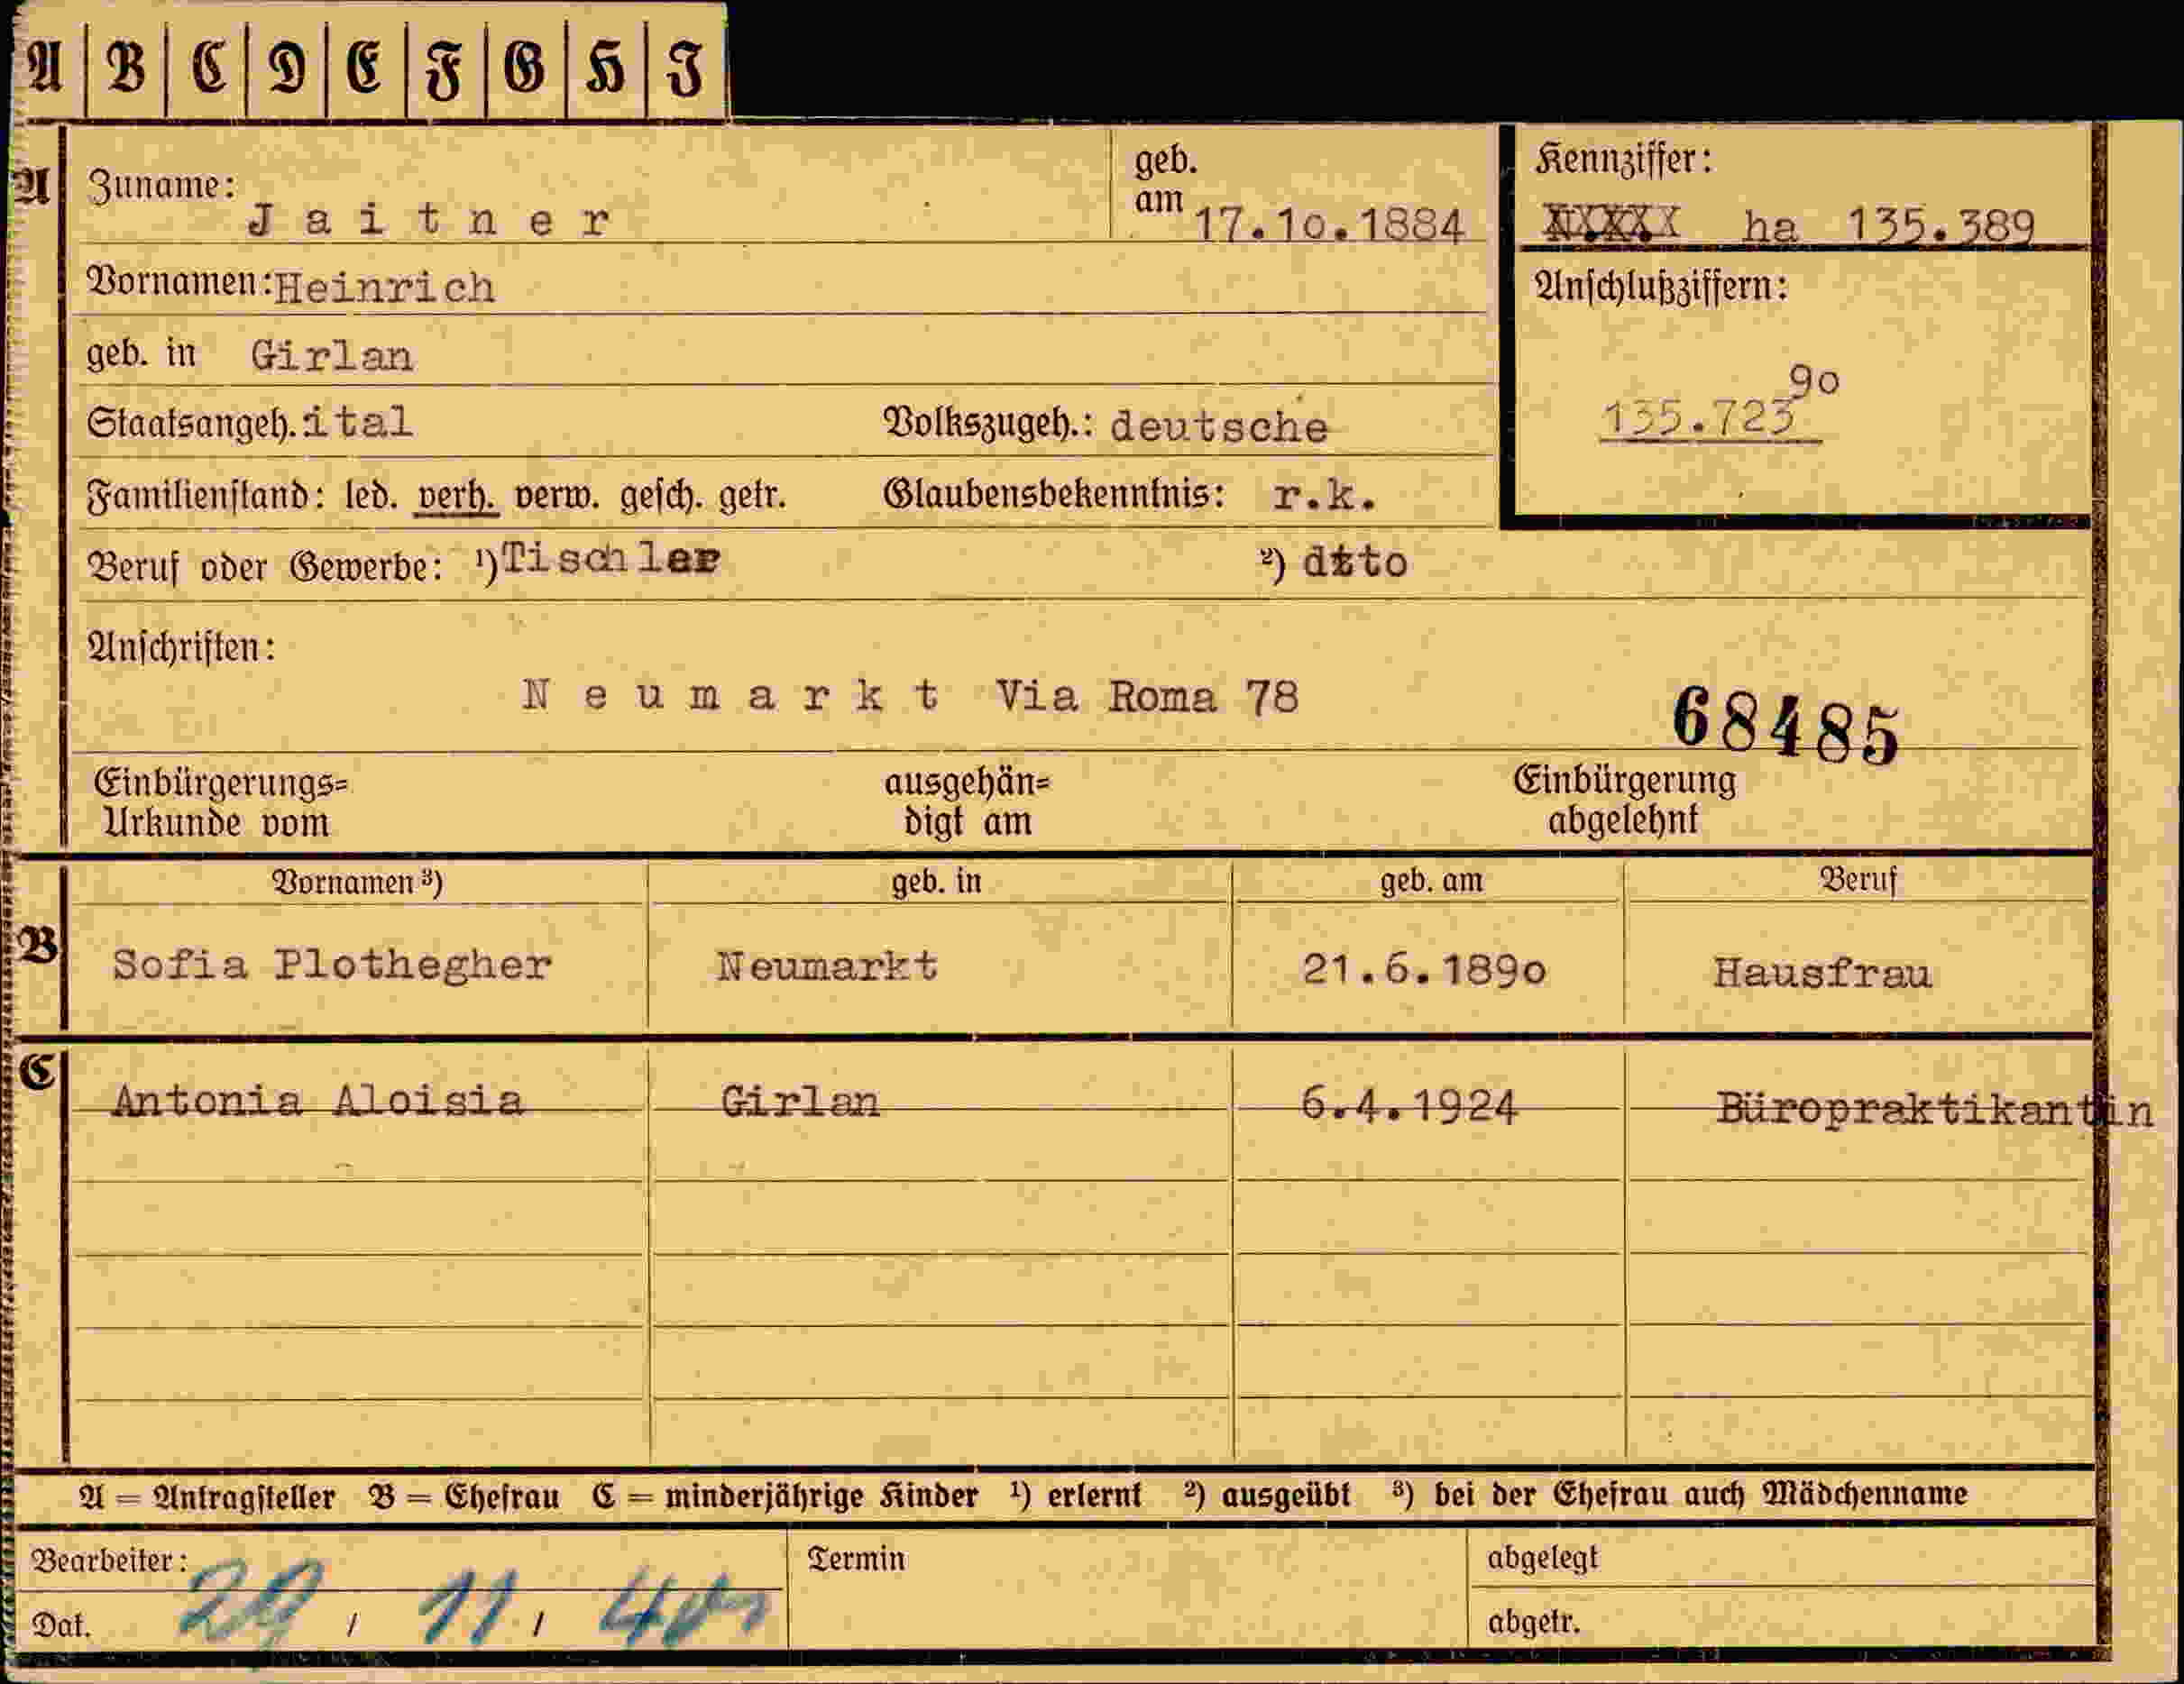 A B C D E F G H I
A
Zuname: Jaitner
geb. am 17.10.1884
Kennziffer:
ha 135.389
Vornamen: Heinrich
Anschlußziffern:
geb. in Girlan
90
135.723
Staatsangeh. ital Volkszugeh.: deutsche
Familienstand: led. verh. verw. gesch. getr. Glaubensbekenntnis: r.k.
Beruf oder Gewerbe: ¹) Tischler ²) dtto
Anschriften:
Neumarkt Via Roma 78
68485
Einbürgerungs= ausgehän= Einbürgerung
Urkunde vom digt am abgelehnt
Vornamen ³) geb. in geb. am Beruf
B
Sofia Plothegher Neumarkt 21.6.1890 Hausfrau
C
Antonia Aloisia Girlan 6.4.1924 Büropraktikantin
A = Antragsteller B = Ehefrau C = minderjährige Kinder ¹) erlernt ²) ausgeübt ³) bei der Ehefrau auch Mädchenname
Bearbeiter: Termin abgelegt
Dat. 29 / 11 / 40 abgetr.